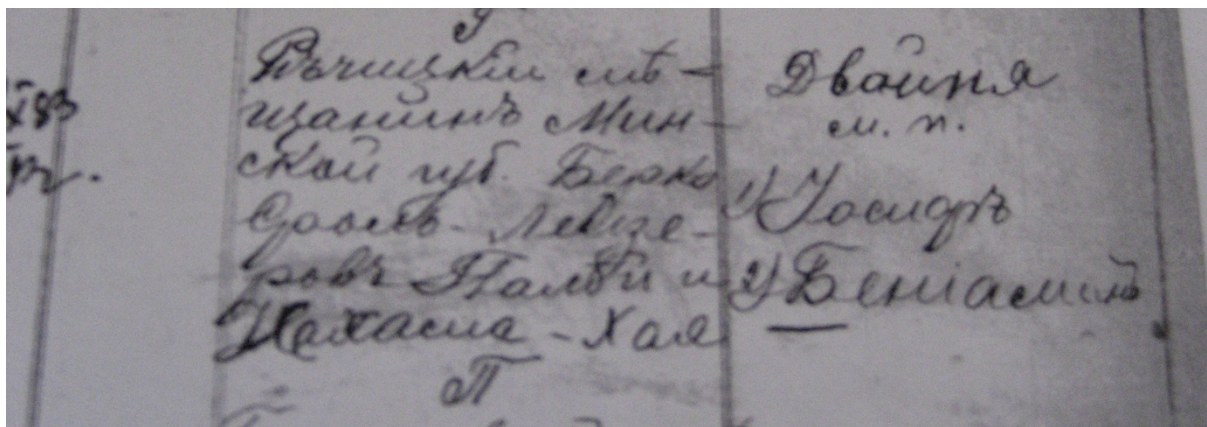 Рѣчицкій мѣ-
щанинъ Мин-
ской губ. Берко
Сроль-Лейзе-
ровъ и
Нехама-Хая
П
Двойня
м. п.
1) Іосифъ
2) Беніаминъ